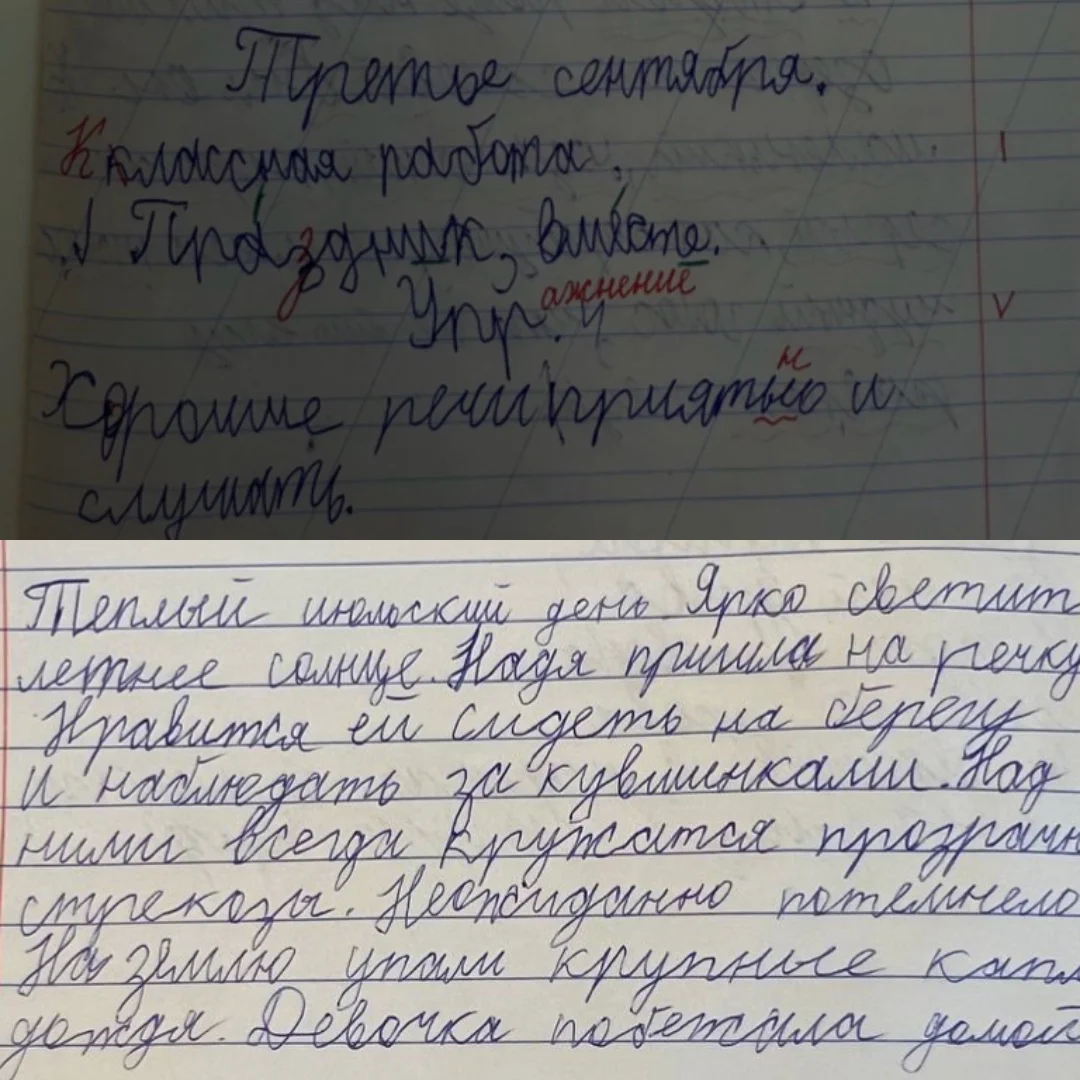 Третье сентября.
Кклассная работа.
Праздник, вместе.
ажнение
Упр. 4
н
Хорошие речи приятьно и
слушать.
Теплый июльский день. Ярко светит
летнее солнце. Надя пришла на речку
Нравится ей сидеть на берегу
и наблюдать за кувшинками. Над
ними всегда кружатся прозрачн
стрекозы. Неожиданно потемнело
На землю упали крупные капл
дождя. Девочка побежала домой